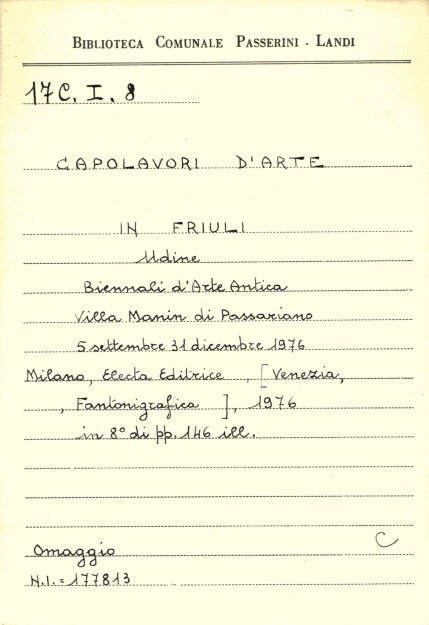 BIBLIOTECA COMUNALE PASSERINI - LANDI
17C. I. 8
CAPOLAVORI D'ARTE
IN FRIULI
Udine
Biennali d'Arte Antica
Villa Manin di Passariano
5 settembre 31 dicembre 1976
Milano, Electa Editrice , [Venezia,
, Fantonigrafica ], 1976
in 8° di pp. 146 ill.
C
Omaggio
N.I. = 177813